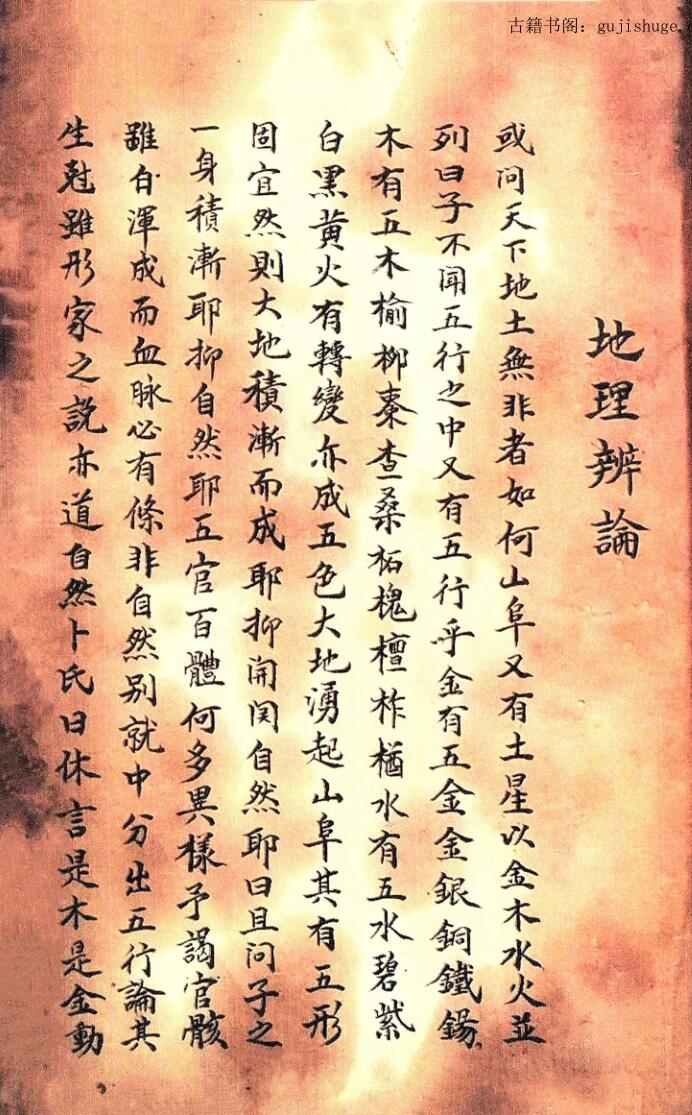 古籍书阁：gujishuge.
地理辨論
或问天下地土無非者如何山阜又有土星以金木水火並
列曰子不闻五行之中又有五行乎金有五金金銀銅鐵鍚
木有五木榆柳棗查桑柘槐檀柞楢水有五水碧紫
白黑黄火有轉變亦成五色大地湧起山阜其有五形
固宜然則大地積漸而成耶抑開闵自然耶曰且问子之
一身積漸耶抑自然耶五官百體何多異樣予謁官骸
雖自渾成而血脉必有條非自然别就中分出五行論其
生尅雖形家之説亦道自然卜氏曰休言是木是金動